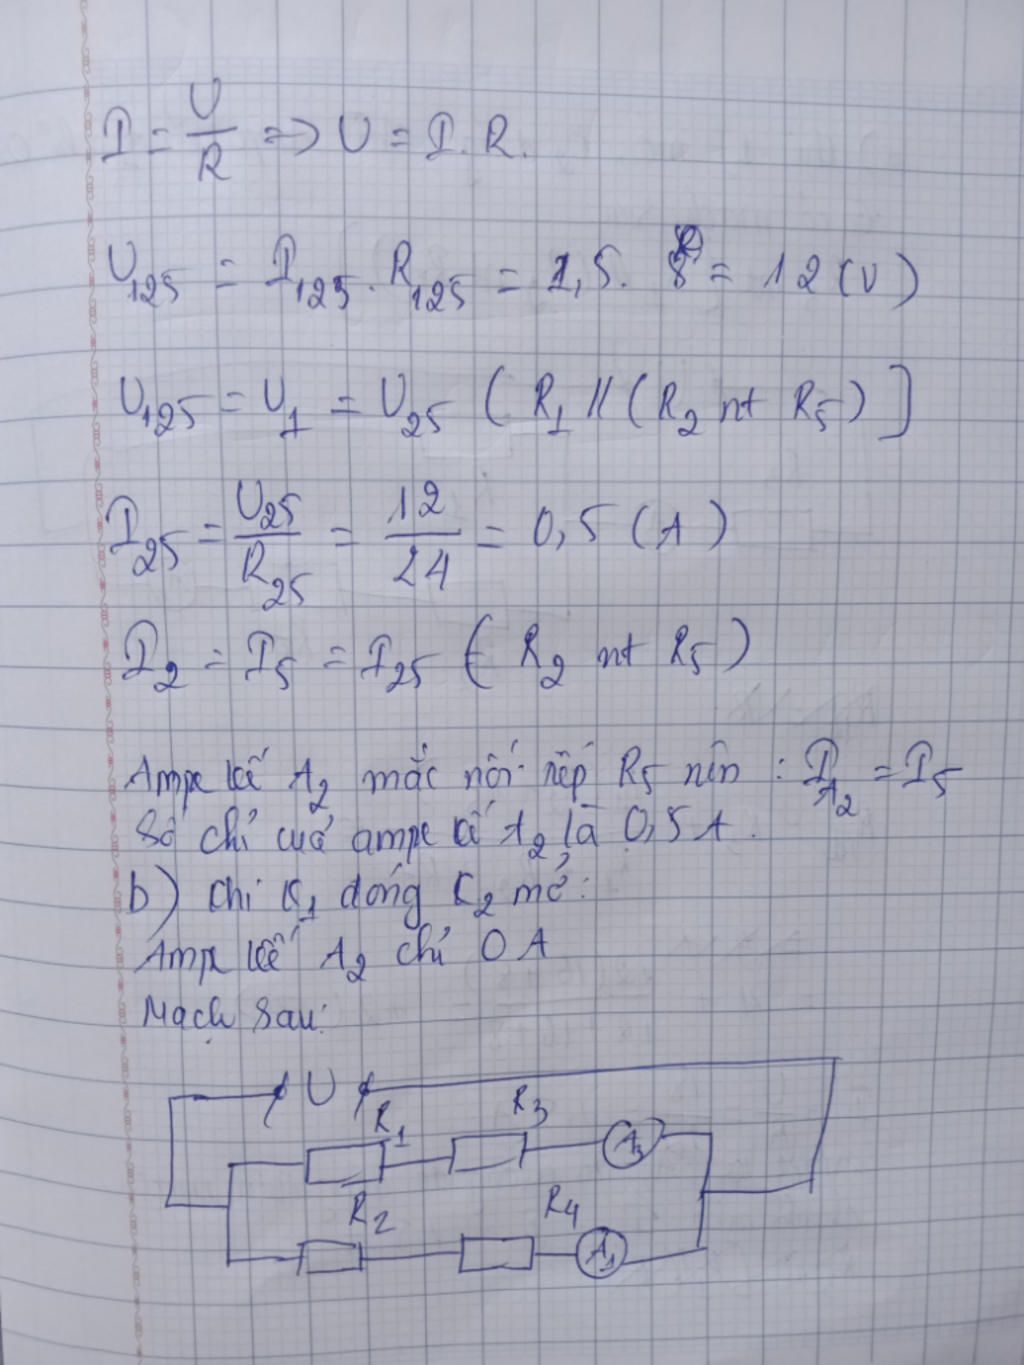 I = U/R => U = I. R.
U125 = I125. R125 = 1,5. 8 = 12 (V)
U125 = U1 = U25 ( R1 // (R2 nt R5) ]
I25 = U25/R25 = 12/24 = 0,5 (A)
I2 = I5 = I25 ( R2 nt R5 )
Ampe kế A2 mắc nối tiếp R5 nên : IA2 = I5
Số chỉ cuả ampe kế A2 là 0,5 A.
b) Khi K1 đóng K2 mở:
Ampe kế A2 chỉ 0 A
Mạch sau:
U
R1 R3
R2 R4
A1